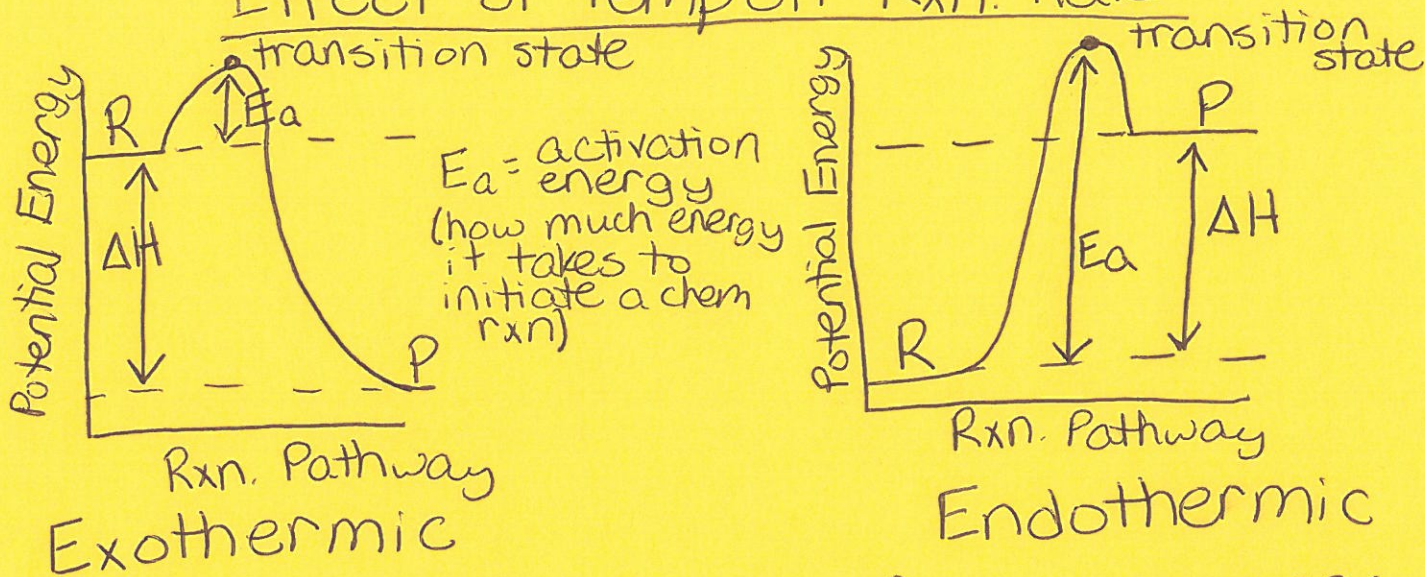 Effect of Temp on Rxn. Rate
transition state
Potential Energy
R
Ea
ΔH
P
Rxn. Pathway
Exothermic
Ea = activation
energy
(how much energy
it takes to
initiate a chem
rxn)
transition
state
Potential Energy
P
ΔH
Ea
R
Rxn. Pathway
Endothermic